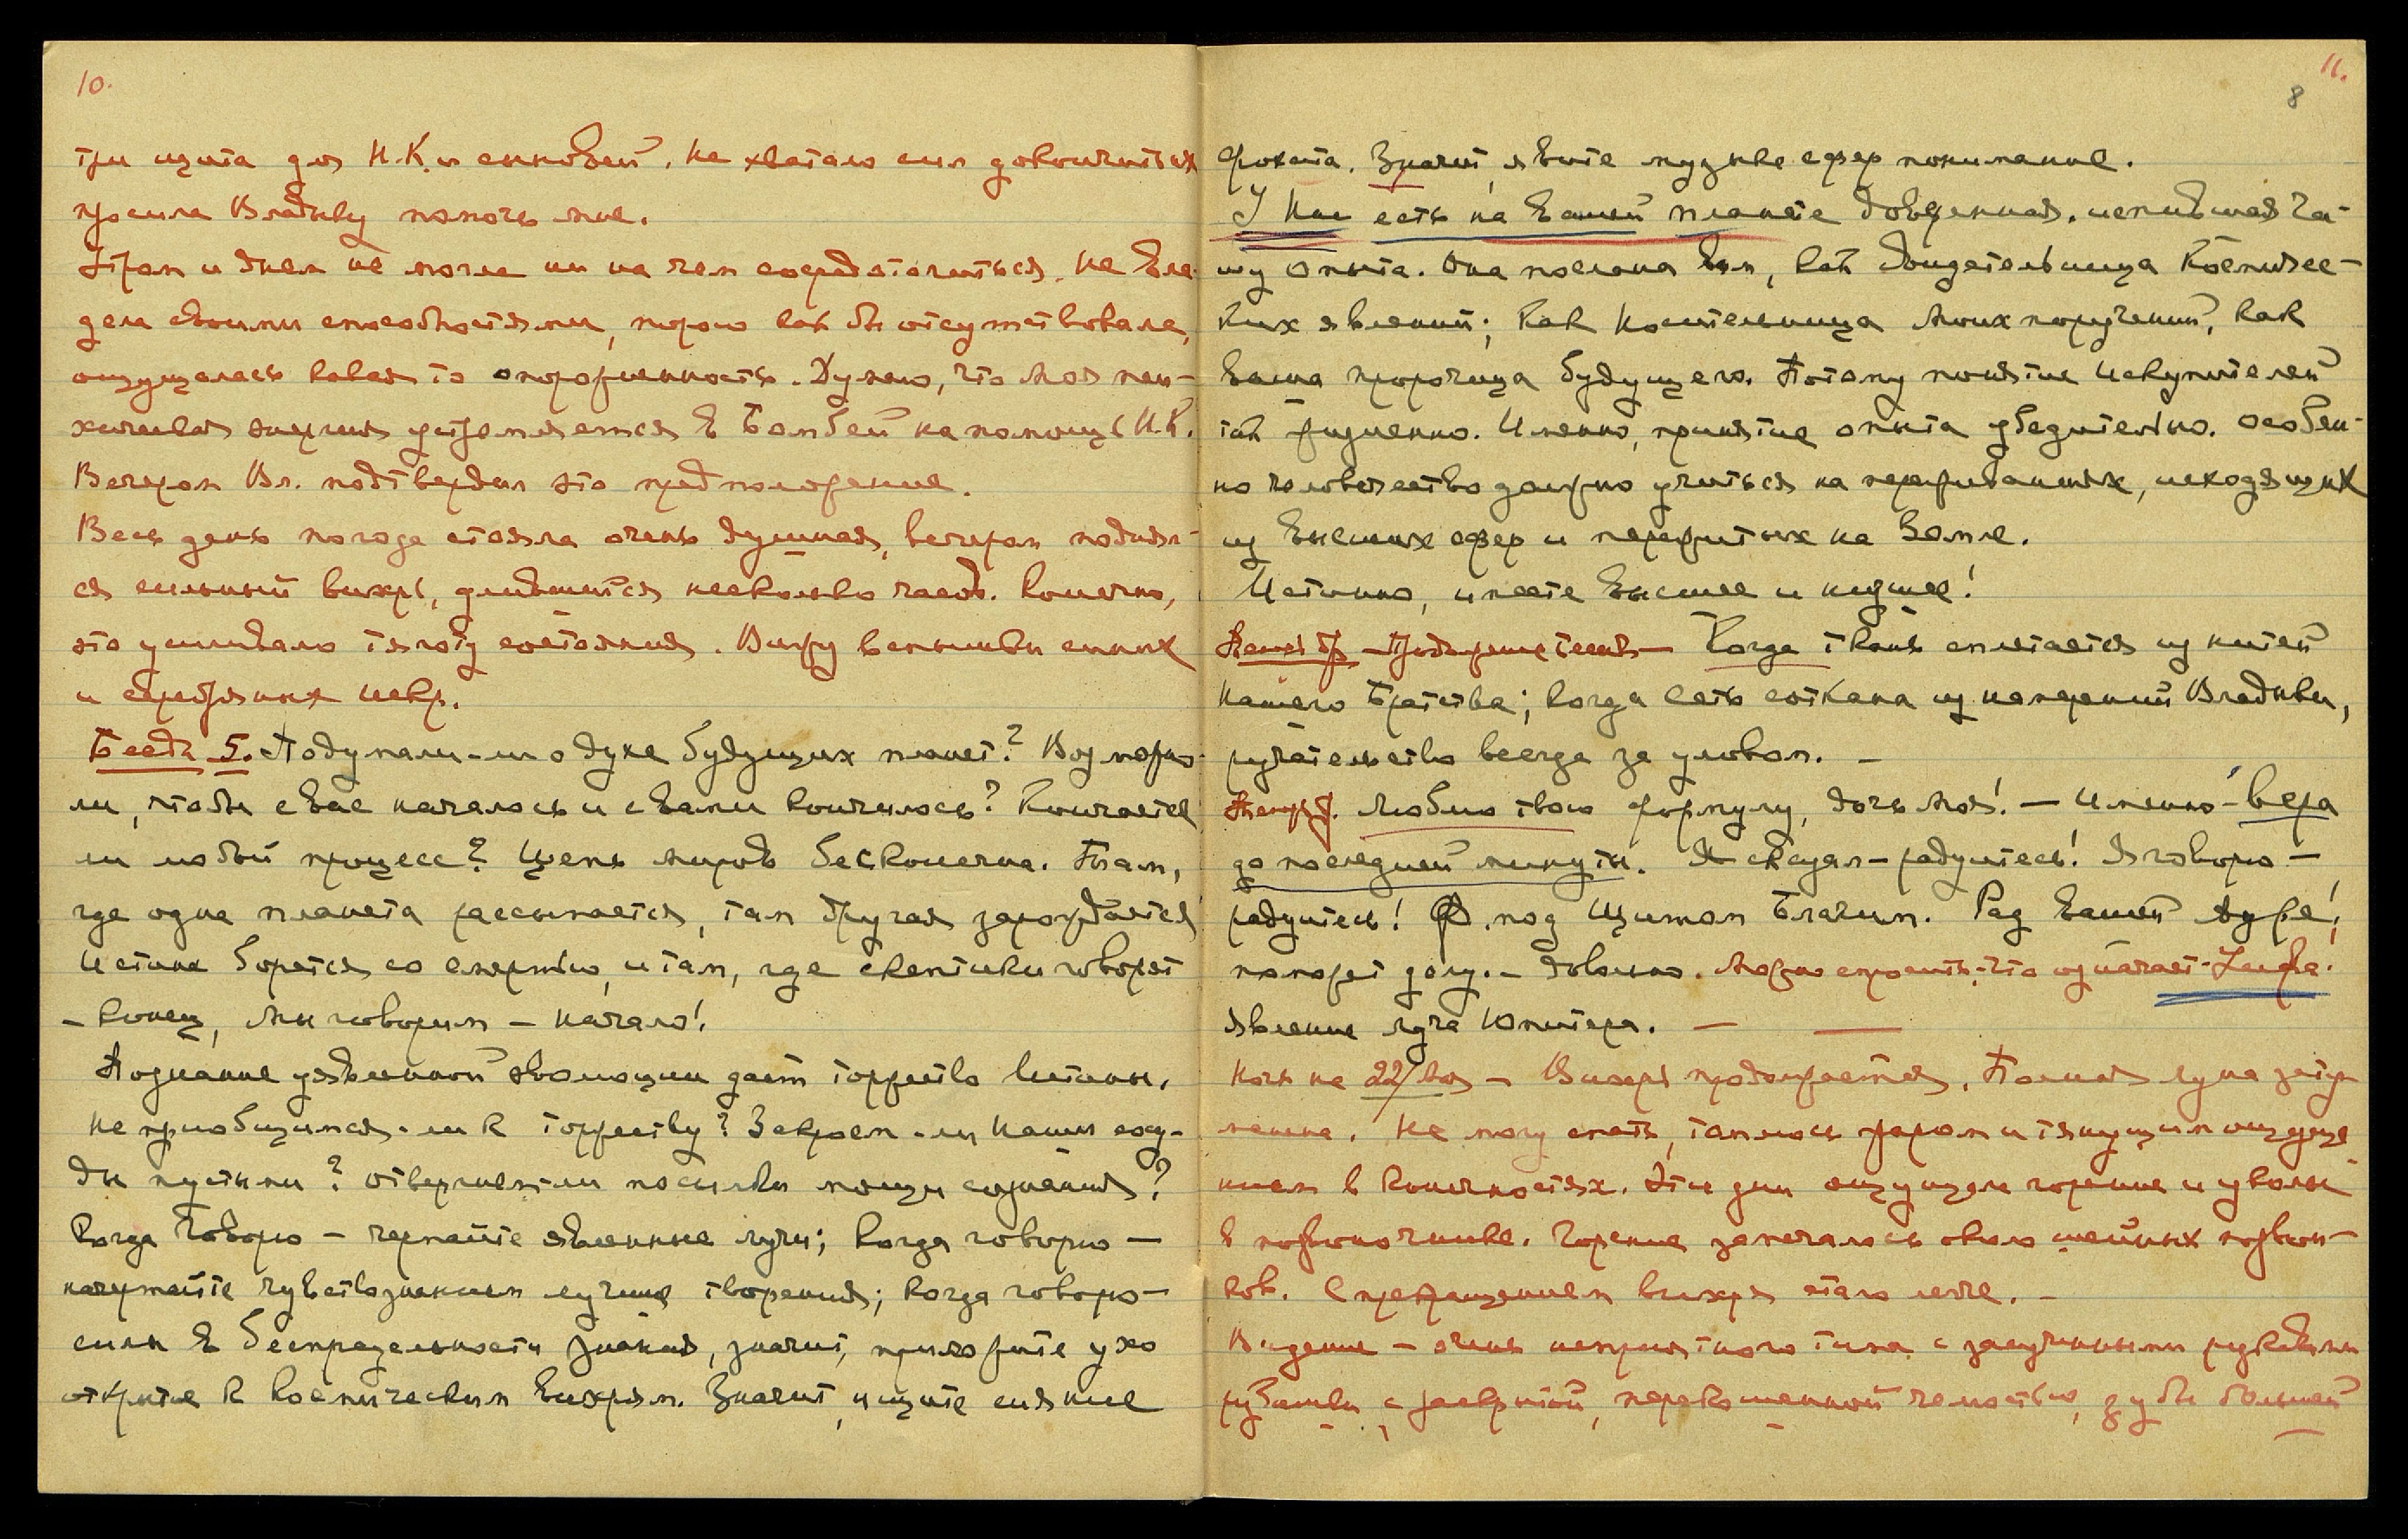 10.
три щита для Н.К. и сыновей. Не хватало сил докончить их
просила Владыку помочь мне.
Утром и днем не могла ни на чем сосредоточиться. Не вла-
дела своими способностями, порою как бы отсутствовала,
ощущалась какая то опорожненность. Думаю, что моя пси-
хическая энергия устремляется в Бомбей на помощь Н.К.
Вечером Вл. подтвердил это предположение.
Весь день погода стояла очень душная, вечером поднял-
ся сильный вихрь, длившийся несколько часов. Конечно,
это усиливало тяготу состояния. Вижу вспышки синих
и серебряных искр.
Беседа 5. Подумали-ли о духе будущих планет? Возможно-
ли, чтобы с Вас началось и с Вами кончилось? Кончается
ли любой процесс? Цепь миров бесконечна. Там,
где одна планета рассыпается, там другая зарождается
Истина борется со смертью, и там, где скептики говорят
– конец, Мы говорим – начало!
Познание явленной эволюции дает торжество Истины.
Не приобщимся-ли к торжеству? Закроем-ли Наши сосу-
ды пустыми? Отвергнем-ли посылки мощи сознания?
Когда Говорю – черпайте явленные лучи; когда говорю –
почерпайте чувствознанием лучшие творения; когда говорю –
силы в беспредельности знания, значит, приложите ухо
открытое к космическим вихрям. Значит, ищите сияние
11.
8
фохата. Значит, явите музыке сфер понимание.
У Нас есть на Вашей планете доверенная, испившая ча-
шу опыта. Она послана Вам, как свидетельница Космичес-
ких явлений; как Носительница Моих поручений, как
Ваша пророчица будущего. Потому понятие Искупителей
так жизненно. Именно, принятие опыта убедительно. Особен-
но человечество должно учиться на переживаниях, исходящих
из высших сфер и пережитых на Земле.
Истинно, имеете высшее и низшее!
Когда ткань сплетается из нитей
Нашего Братства; когда сеть соткана из намерений Владыки,
ручательство всегда за уловом. –
Люблю твою формулу, дочь Моя! – Именно – вера
до последней минуты. Я сказал – радуйтесь! Я говорю –
радуйтесь! Ф. под Щитом Благим. Рад Вашей ауре!,
поможет делу. – Довольно. Можно спросить: что означает
Явление луча Юпитера. —
Ночь на 22/ – Вихрь продолжается. Полная луна затум-
манена. Не могу спать, томлюсь жаром и тянущим ощуще
нием в конечностях. Эти дни ощущала горение и уколы
в позвоночнике. Горение замечалось около шейных позвон-
ков. С прекращением вихря стало легче. –
Видение – очень неприятного типа с засученными рукавами
рубашки с раскрытой, перекошенной челюстью, зубы большей